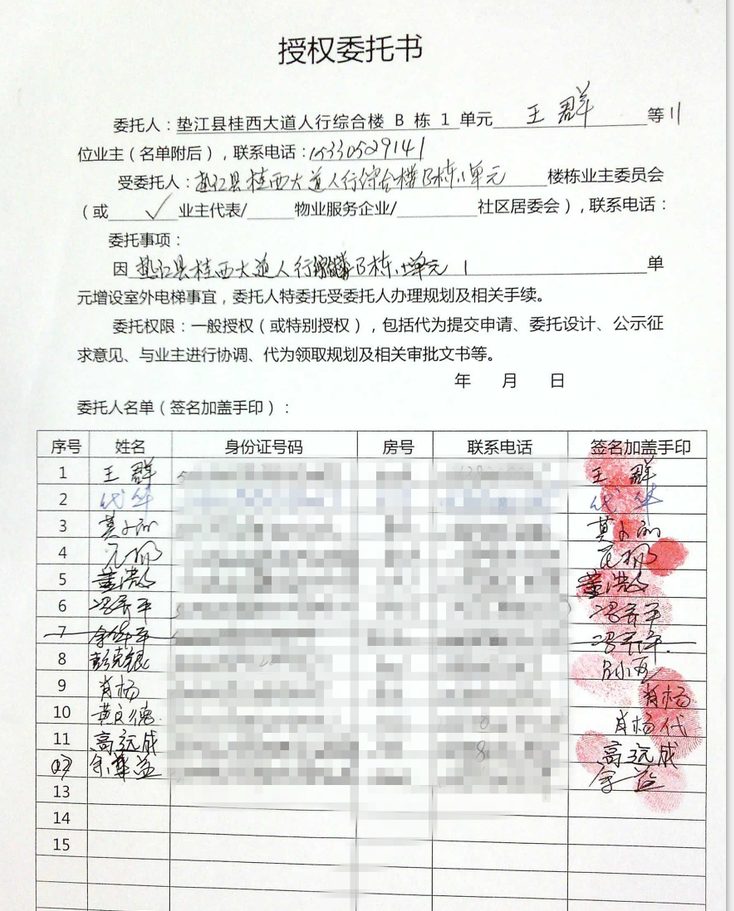 授权委托书
委托人：垫江县桂西大道人行综合楼 B 栋 1 单元 王群 等11
位业主（名单附后），联系电话：15330529141
受委托人：垫江县桂西大道人行综合楼B栋1单元 楼栋业主委员会
（或 ✓ 业主代表/ 物业服务企业/ 社区居委会），联系电话：
委托事项：
因 垫江县桂西大道人行综合楼B栋1单元 1 单
元增设室外电梯事宜，委托人特委托受委托人办理规划及相关手续。
委托权限：一般授权（或特别授权），包括代为提交申请、委托设计、公示征
求意见、与业主进行协调、代为领取规划及相关审批文书等。
年 月 日
委托人名单（签名加盖手印）：
序号 姓名 身份证号码 房号 联系电话 签名加盖手印
1 王群 王群
2 代华 代华
3
4
5 董浩 董浩
6 冯齐平 冯齐平
7 冯齐平
8 彭克银
9 肖杨 肖杨
10 黄良德 肖杨代
11 高远成 高远成
12 余益 余益
13
14
15